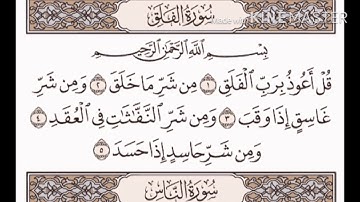 سُورَةُ الْفَلَقِ
Made with KINEMASTER
بِسْمِ اللَّهِ الرَّحْمَٰنِ الرَّحِيمِ
قُلْ أَعُوذُ بِرَبِّ الْفَلَقِ ١ مِن شَرِّ مَا خَلَقَ ٢ وَمِن شَرِّ
غَاسِقٍ إِذَا وَقَبَ ٣ وَمِن شَرِّ النَّفَّاثَاتِ فِي الْعُقَدِ ٤
وَمِن شَرِّ حَاسِدٍ إِذَا حَسَدَ ٥
سُورَةُ النَّاسِ